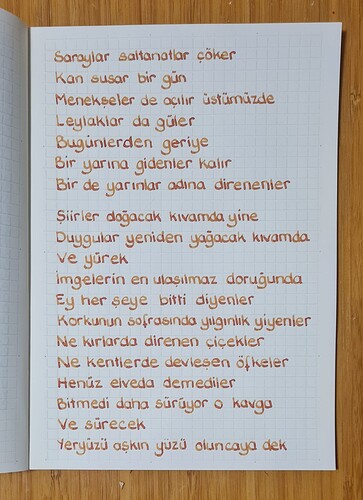 Saraylar saltanatlar çöker
Kan susar bir gün
Menekşeler de açılır üstümüzde
Leylaklar da güler
Bugünlerden geriye
Bir yarına gidenler kalır
Bir de yarınlar adına direnenler
Şiirler doğacak kıvamda yine
Duygular yeniden yağacak kıvamda
Ve yürek
İmgelerin en ulaşılmaz doruğunda
Ey her şeye bitti diyenler
Korkunun sofrasında yılgınlık yiyenler
Ne kırlarda direnen çiçekler
Ne kentlerde devleşen öfkeler
Henüz elveda demediler
Bitmedi daha sürüyor o kavga
Ve sürecek
Yeryüzü aşkın yüzü oluncaya dek